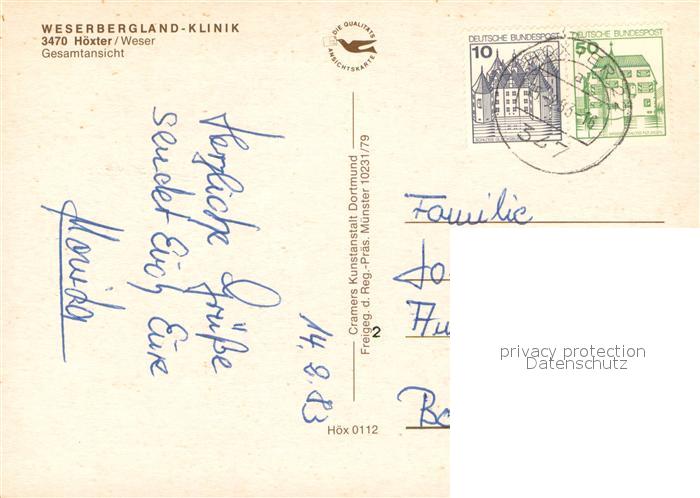 WESERBERGLAND-KLINIK
3470 Höxter/Weser
Gesamtansicht
DIE QUALITÄTS
ANSICHTSKARTE
DEUTSCHE BUNDESPOST
10
DEUTSCHE BUNDESPOST
50
HÖXTER
347
14. 2. 83
Herzliche Grüße
sendet Euch Eure
Monika
Cramers Kunstanstalt Dortmund
Freigeg. d. Reg.-Präs. Münster 10231/79
2
Höx 0112
Familie
Jo
Au
Ba
privacy protection
Datenschutz